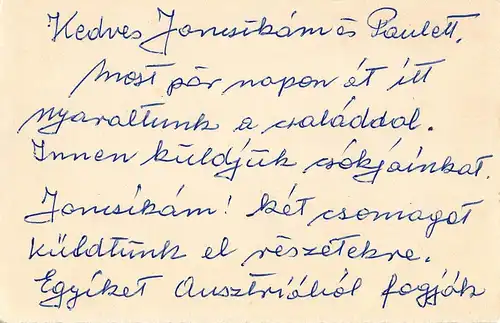 Kedves Jancsikám és Paulett.
Most pár napon át itt
nyaraltunk a családdal.
Innen küldjük csókjainkat.
Jancsikám! két csomagot
küldtünk el részetekre.
Egyiket Ausztriából fogják